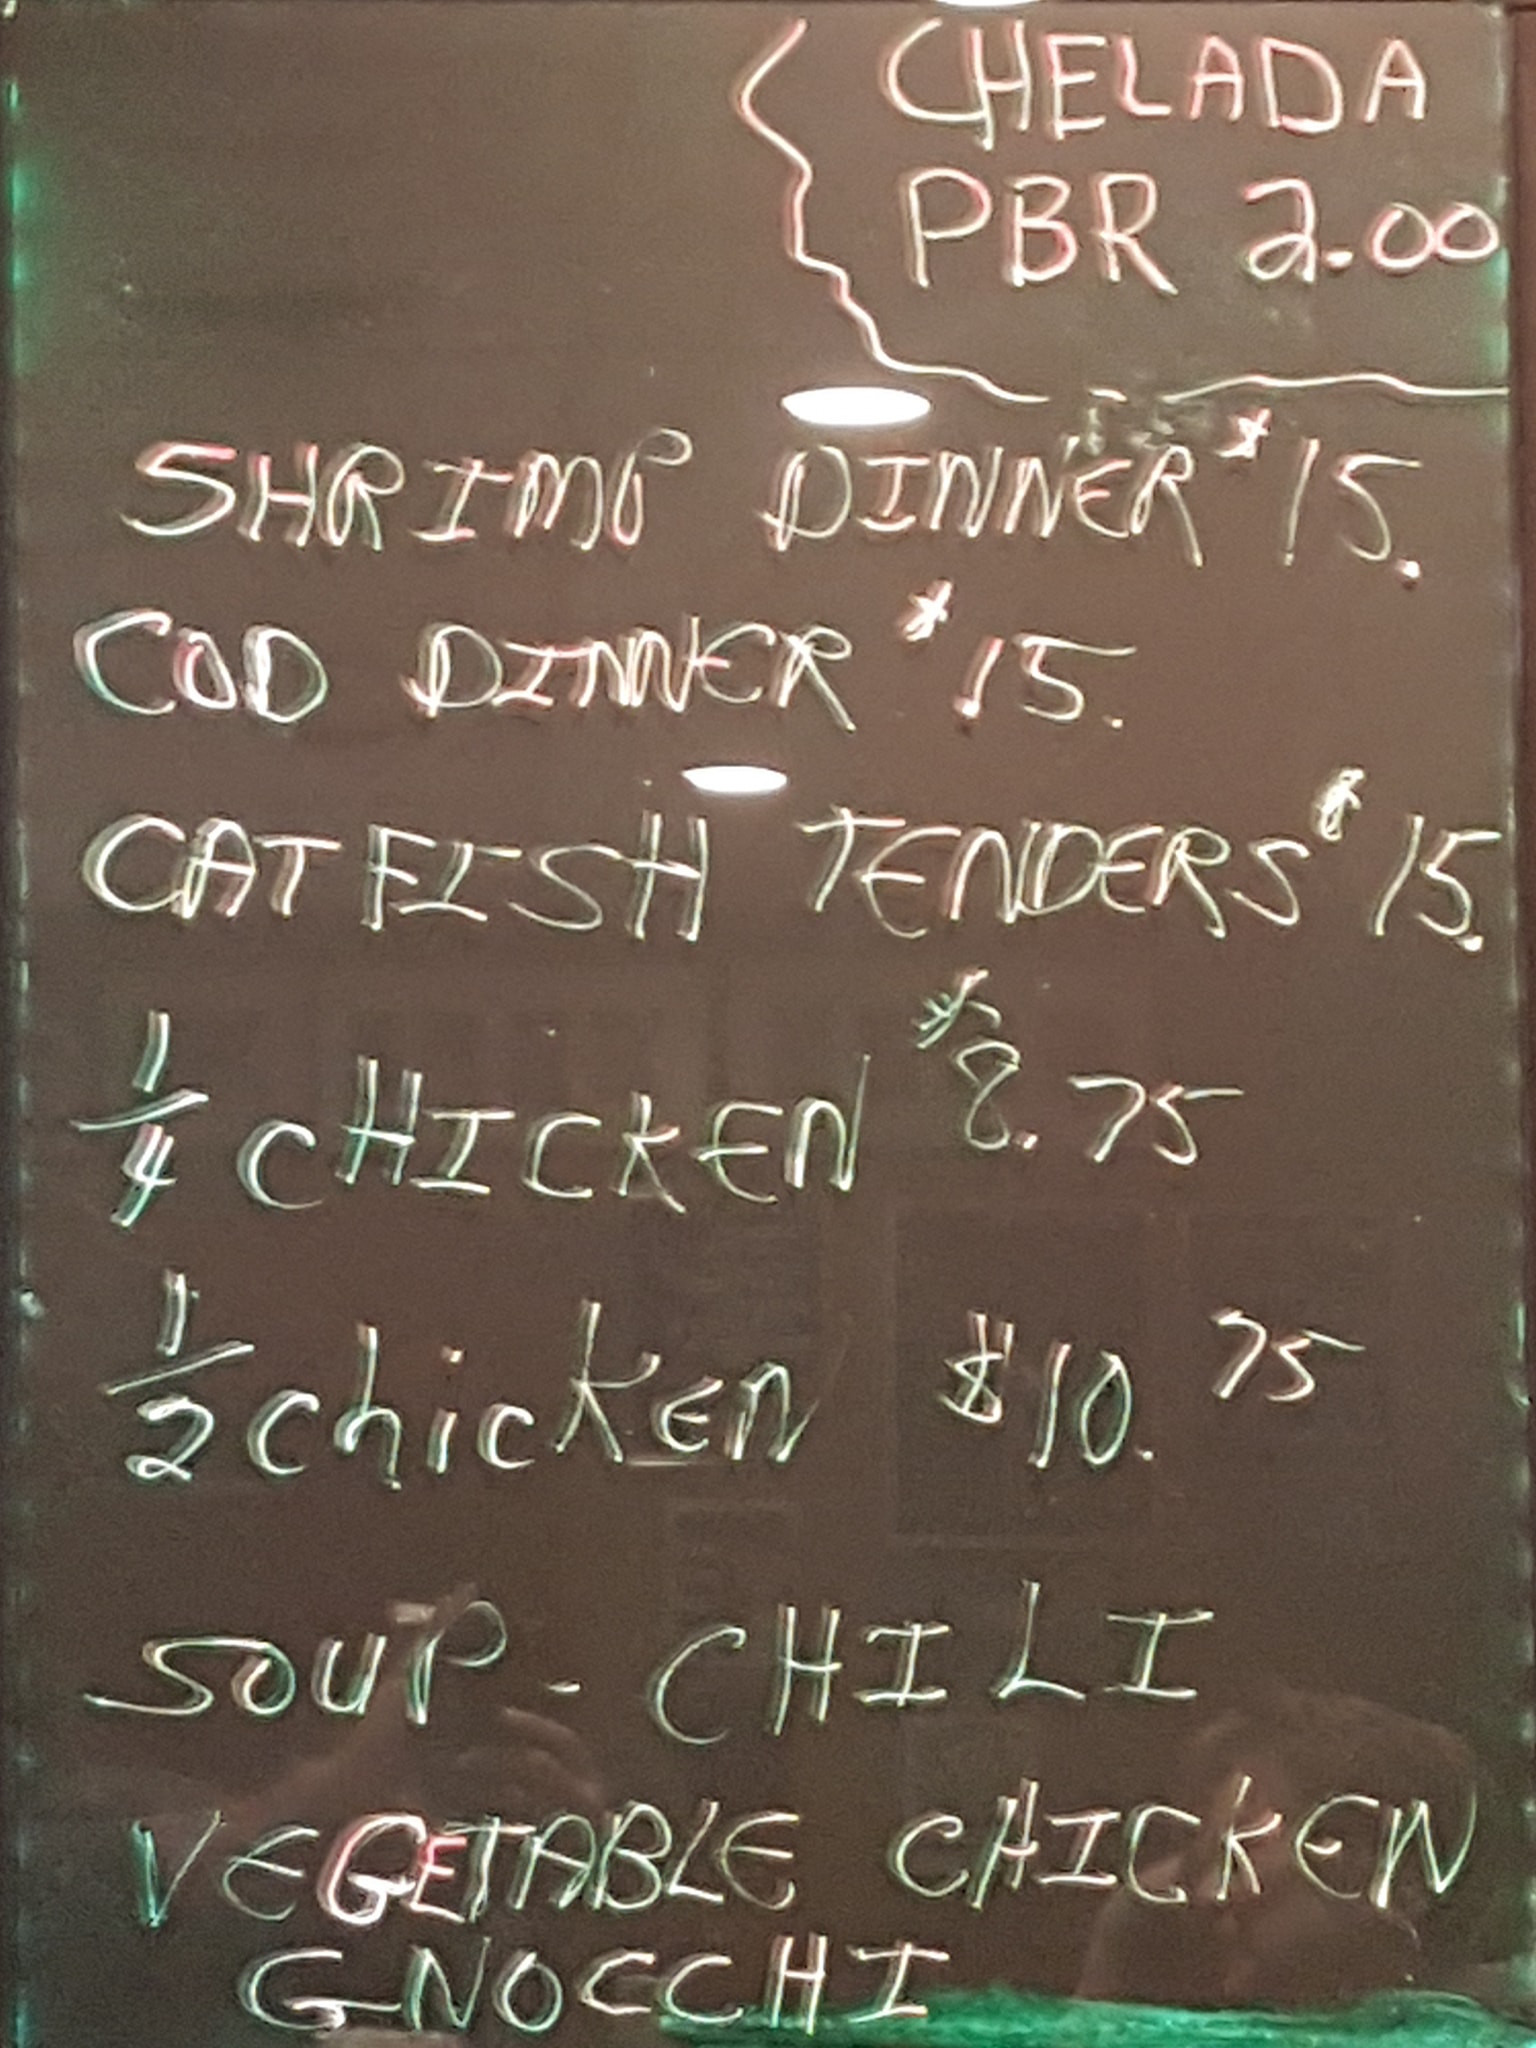 CHELADA
PBR 2.00
SHRIMP DINNER $15.
COD DINNER $15.
CATFISH TENDERS $15.
1/4 CHICKEN $8.75
1/2 chicKEN $10.75
SOUP - CHILI
VEGETABLE CHICKEN
GNOCCHI